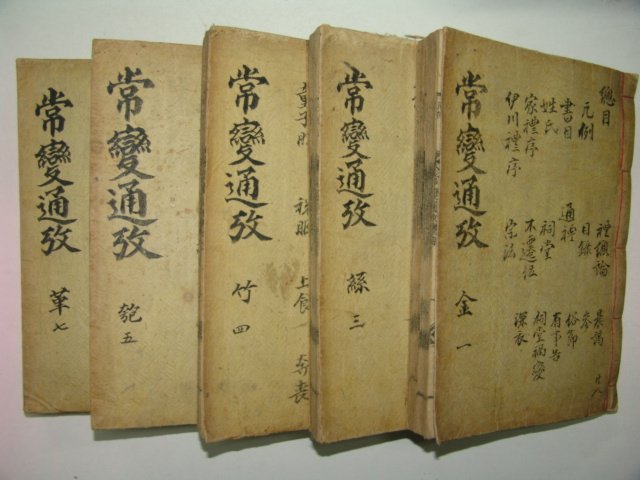 常變通攷
金 一
總目
凡例
書目
姓氏
家禮序
伊川禮序
禮總論
目錄
通禮
祠堂
不遷位
宗法
晨謁
參
俗節
有事告
祠堂禍變
深衣
共八
常變通攷
絲 三
常變通攷
竹 四
童子服
稅服
上食
奔喪
常變通攷
匏 五
常變通攷
革 七